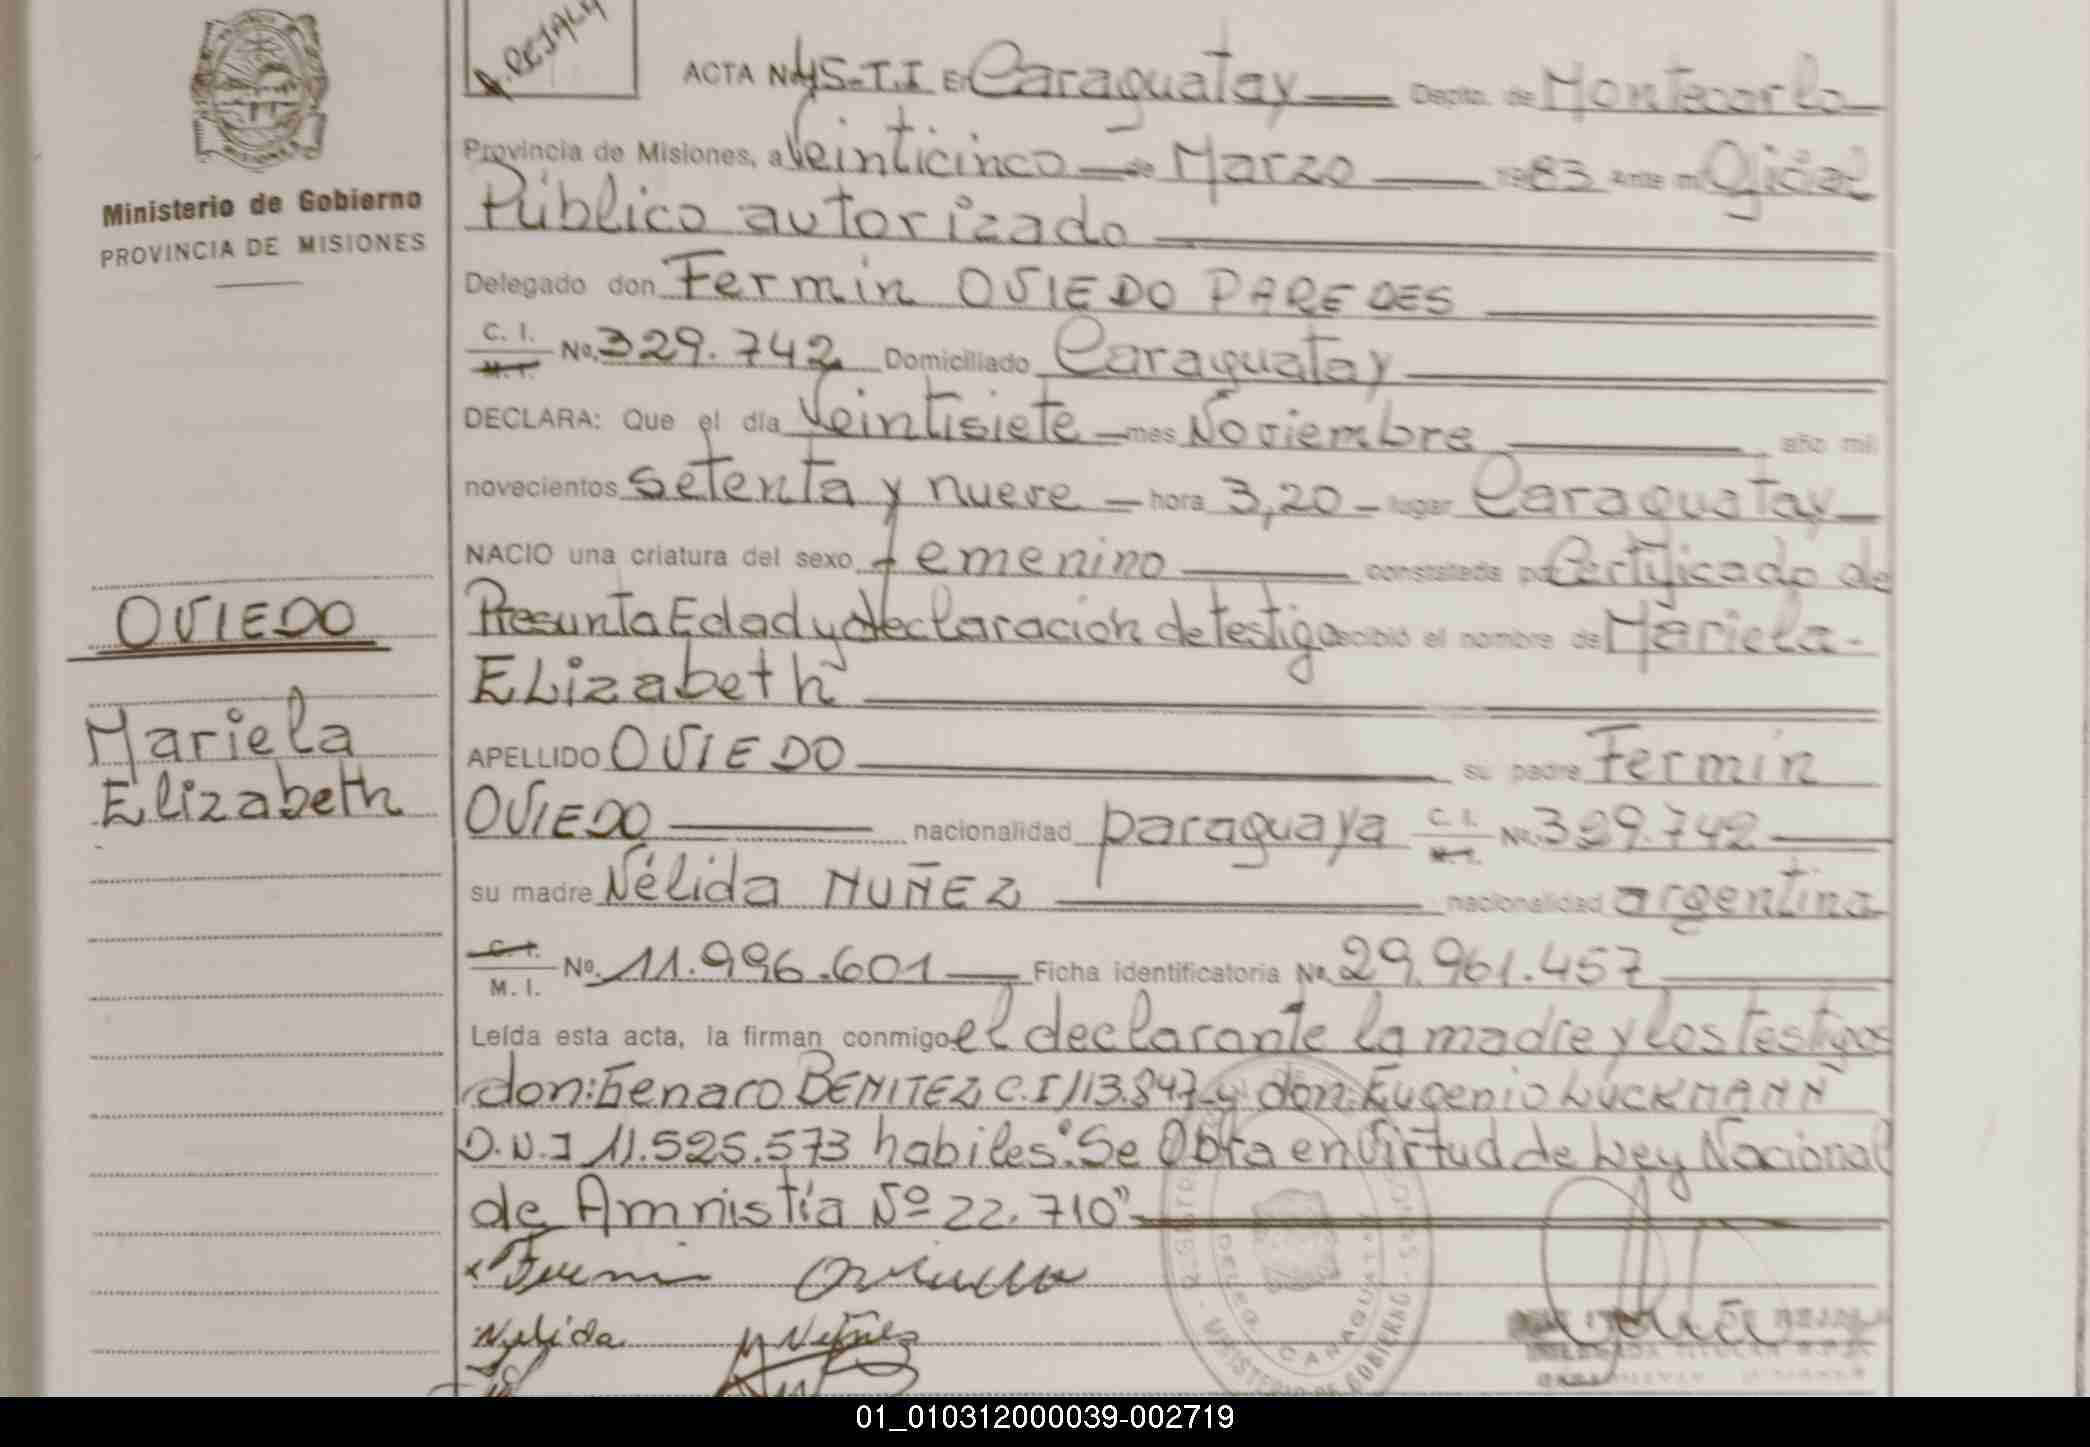 A. REJALA
ACTA Nº 45-T.I En Caraguatay Depto. de Montecarlo
Provincia de Misiones, a Veinticinco de Marzo 1983 ante mí Oficial
Público autorizado
Ministerio de Gobierno
PROVINCIA DE MISIONES
Delegado don Fermin OVIEDO PAREDES
C. I.
M. I.
No. 329.742 Domiciliado Caraguatay
DECLARA: Que el día Veintisiete mes Noviembre año mil
novecientos setenta y nueve hora 3,20 lugar Caraguatay
NACIO una criatura del sexo femenino constatada por Certificado de
Presunta Edad y declaración de testigo recibió el nombre de Mariela-
Elizabeth
OVIEDO
Mariela
Elizabeth
APELLIDO OVIEDO su padre Fermin
OVIEDO nacionalidad paraguaya C. I. No. 329.742
su madre Nélida NUÑEZ nacionalidad argentina
C. I.
M. I.
No. 11.996.601 Ficha identificatoria No. 29.961.457
Leída esta acta, la firman conmigo el declarante la madre y los testigos
don: Genaro BENITEZ C.I 113.847 y don: Eugenio LUCKMANN
D.N.I 11.525.573 habiles: "Se Obta en Virtud de Ley Nacional
de Amnistía Nº 22.710"
x Fermin Oviedo
Nelida Nuñez
01_010312000039-002719